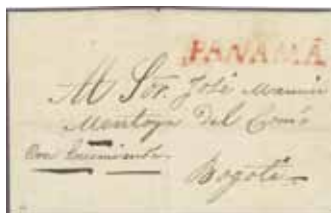 PANAMÁ
Al Sor. José Manuel
Montoya Del Come
Con Encomienda.
Bogotá